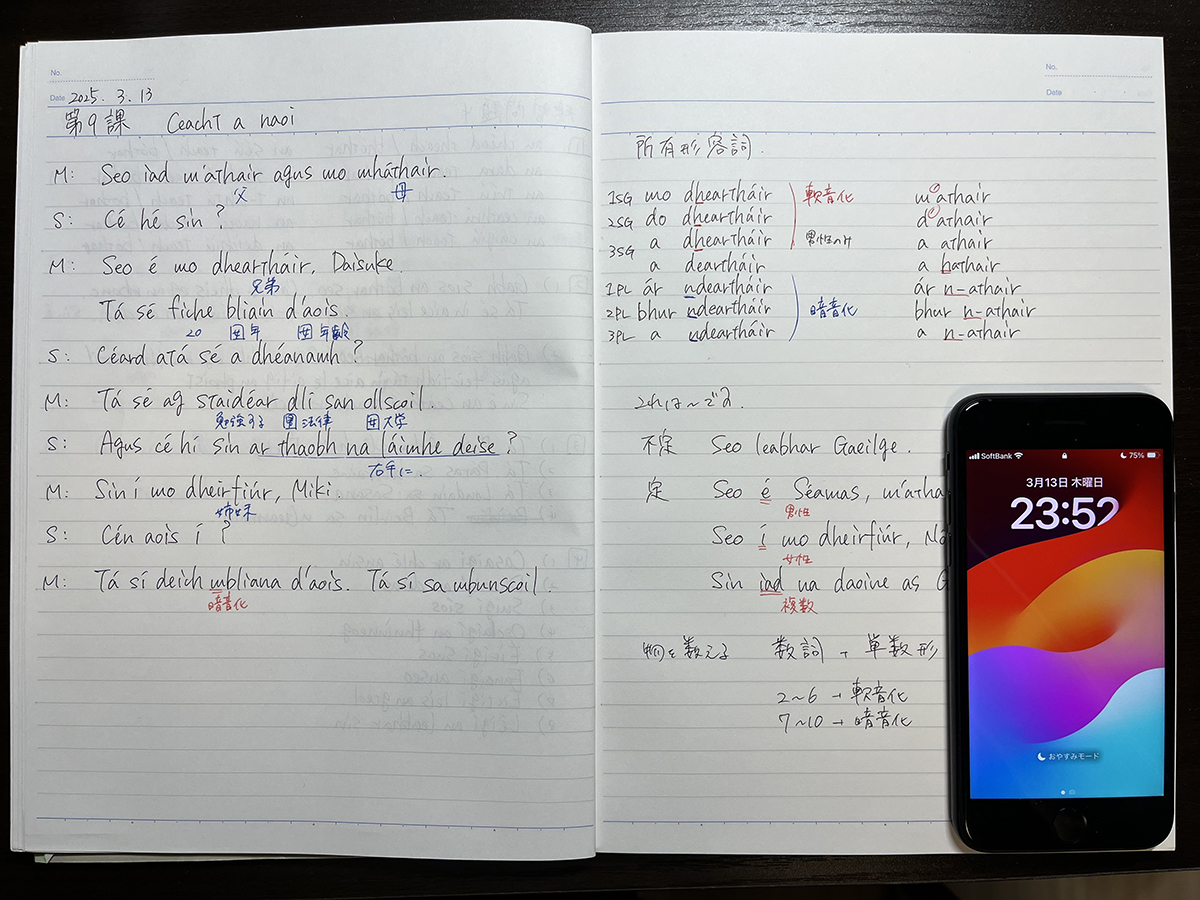 No.
Date 2025. 3. 13
第9課 Ceacht a naoi
M: Seo iad m'athair agus mo mháthair.
父 母
S: Cé hé sin?
M: Seo é mo dheartháir, Daisuke.
兄弟
Tá sé fiche bliain d'aois.
20 年 年齢
S: Céard atá sé a dhéanamh?
M: Tá sé ag staidéar dlí san ollscoil.
勉強する 法律 大学
S: Agus cé hí sin ar thaobh na láimhe deise?
右手に
M: Sin í mo dheirfiúr, Miki.
姉妹
S: Cén aois í?
M: Tá sí deich mbliana d'aois. Tá sí sa mbunscoil.
暗音化
No.
Date
所有形容詞.
1SG mo dheartháir 軟音化 m'athair
2SG do dheartháir d'athair
3SG a dheartháir 男性のみ a athair
a deartháir a hathair
1PL ár ndeartháir ár n-athair
2PL bhur ndeartháir 暗音化 bhur n-athair
3PL a ndeartháir a n-athair
これは〜です.
不定 Seo leabhar Gaeilge.
定 Seo é Séamas, m'atha
男性
Seo í mo dheirfiúr, Nó
女性
Sin iad na daoine as G
複数
物を数える 数詞 + 単数形
2~6 → 軟音化
7~10 → 暗音化
SoftBank 75%
3月13日 木曜日
23:52
おやすみモード